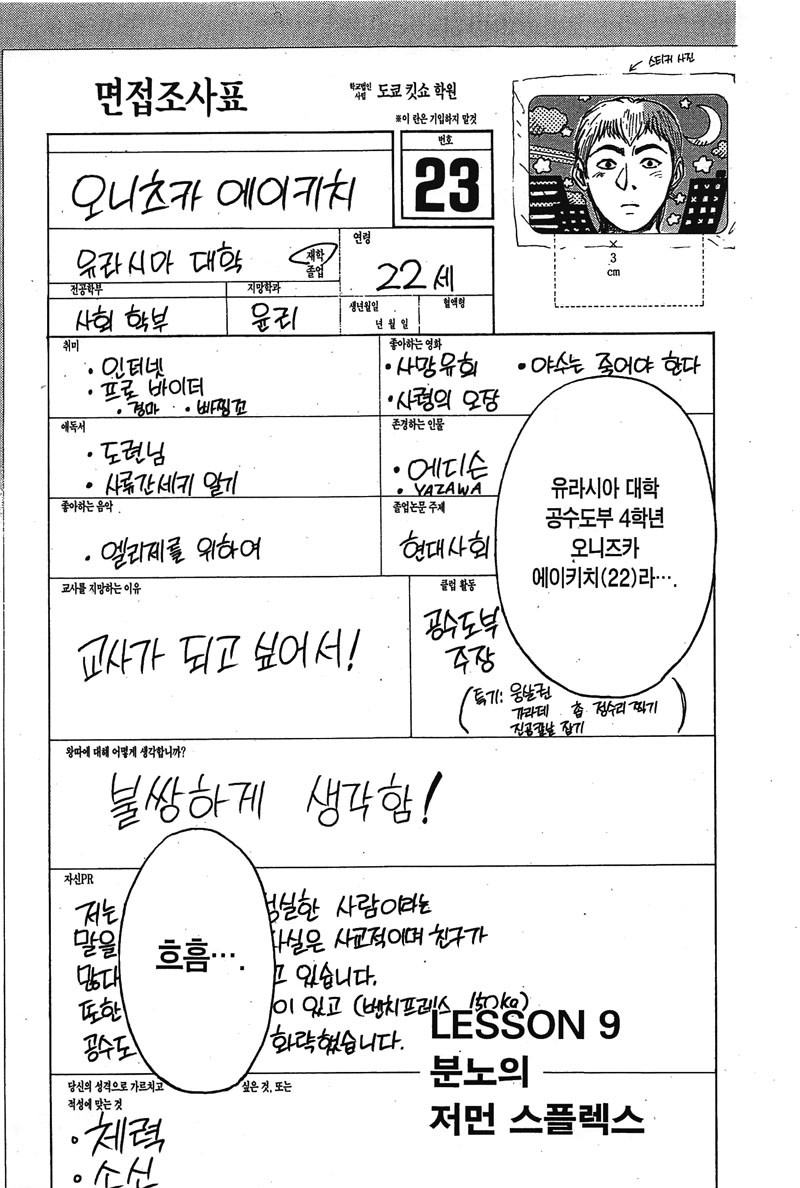 스티커 사진
면접조사표
학교법인 사립 도쿄 킷쇼 학원
※이 란은 기입하지 말것
번호
23
오니츠카 에이키치
×
3
cm
유라시아 대학
재학
졸업
연령
22세
전공학부
사회 학부
지망학과
윤리
생년월일
년 월 일
혈액형
취미
• 인터넷
• 프로 바이터
• 경마 • 빠찡꼬
좋아하는 영화
• 사망유희 • 야수는 죽어야 한다
• 사령의 오장
애독서
• 도련님
• 사류간세키 일기
존경하는 인물
• 에디슨
• YAZAWA
좋아하는 음악
• 엘리제를 위하여
졸업논문 주제
현대사회
유라시아 대학
공수도부 4학년
오니즈카
에이키치(22)라….
교사를 지망하는 이유
교사가 되고 싶어서!
클럽 활동
공수도부
주장
(특기: 웅살권
가라데 춉 정수리 찍기
진공칼날 잡기)
왕따에 대해 어떻게 생각합니까?
불쌍하게 생각함!
자신PR
저는 성실한 사람이라는
말을 사실은 사교적이며 친구가
많다 고 있습니다.
또한 이 있고 (벤치프레스 150kg)
공수도 화략했습니다.
흐흠….
LESSON 9
분노의
저먼 스플렉스
당신의 성격으로 가르치고 싶은 것, 또는
적성에 맞는 것
• 체력
• 소신